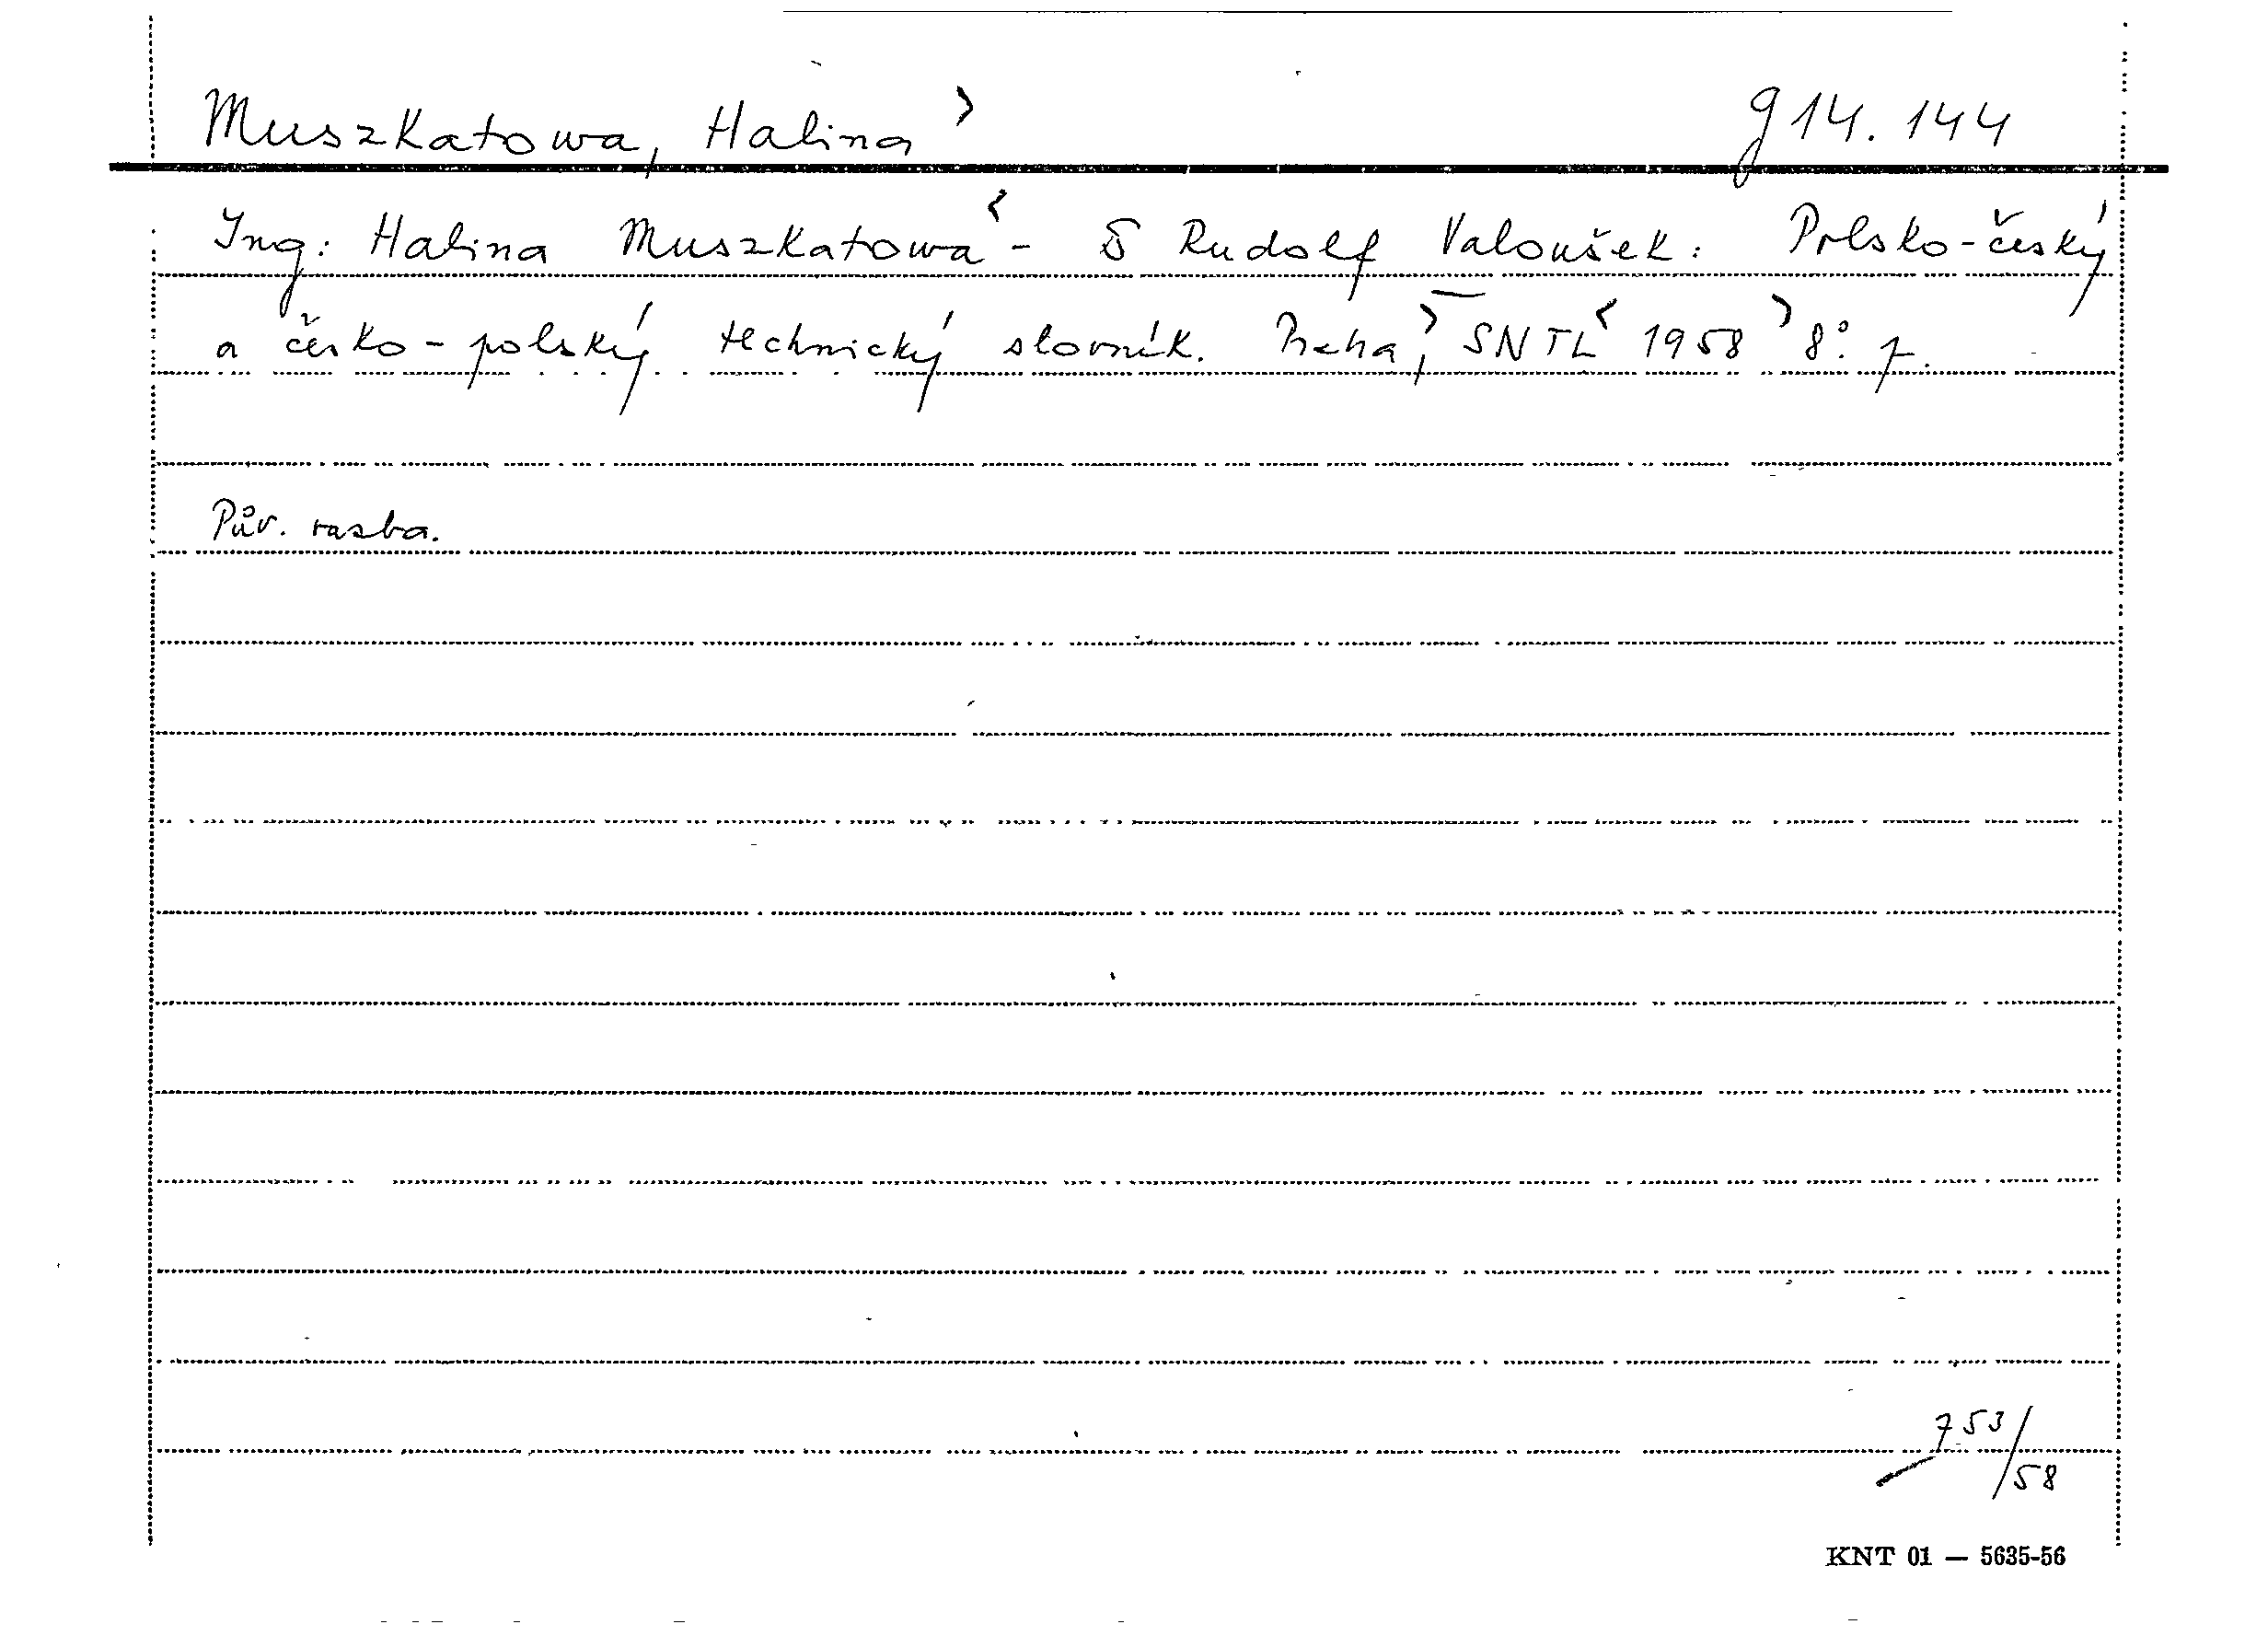 Muszkatowa, Halina g 14.144
Ing. Halina Muszkatowa - Rudolf Valoušek: Polsko-český
a česko-polský technický slovník. Praha, SNTL 1958 8°.
Pův. vazba.
753/58
KNT 01 — 5635-56